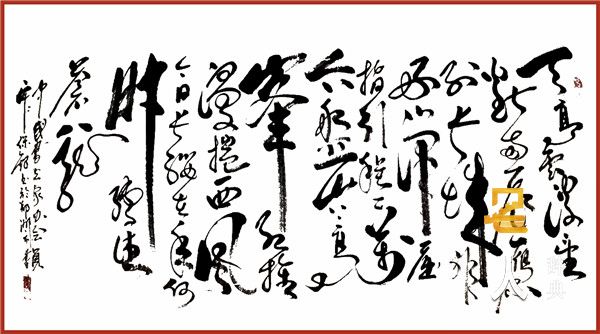 天高雲淡望
断南飛雁不
到长城非
好汉屈
指行程二萬
六盘山上高
峰红旗
漫捲西风
今日长缨在手何
时缚住
蒼龙
中國書画家协会
名人辞典